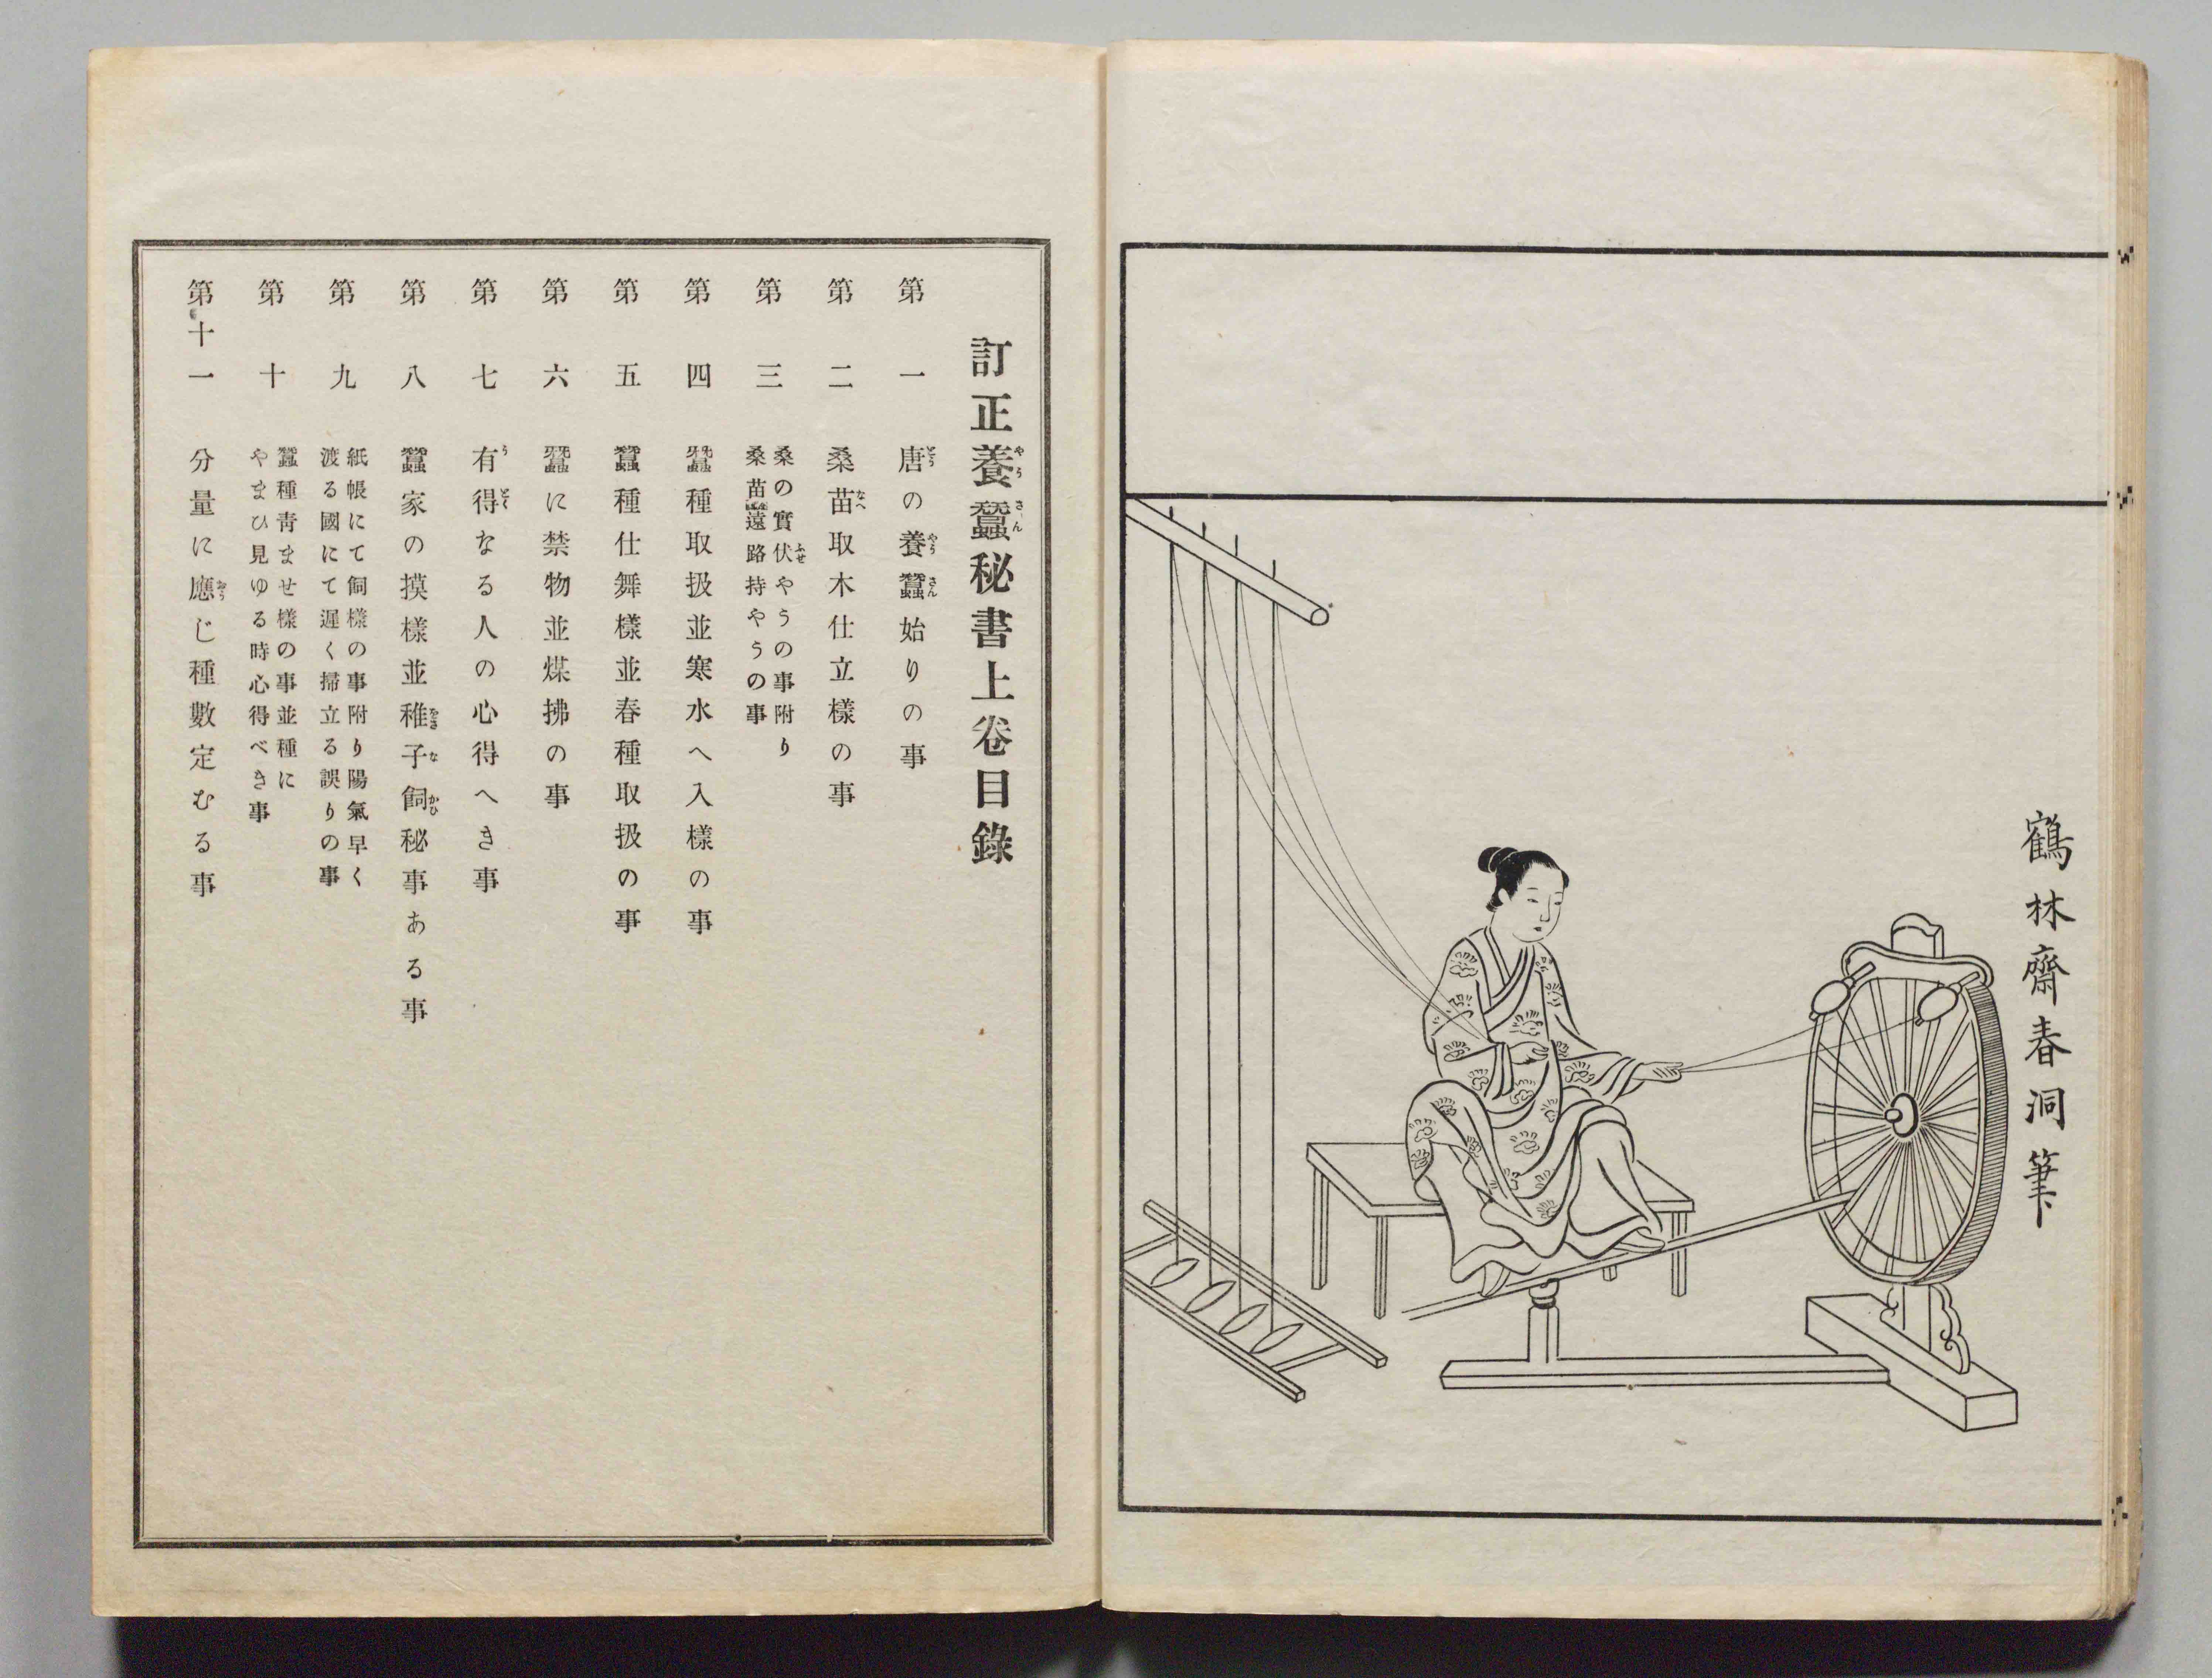 鶴林齋春洞筆
訂正養蠶秘書上卷目錄
第一 唐の養蠶始りの事
第二 桑苗取木仕立樣の事
第三 桑の實伏やうの事附り
桑苗遠路持やうの事
第四 蠶種取扱並寒水へ入樣の事
第五 蠶種仕舞樣並春種取扱の事
第六 蠶に禁物並煤拂の事
第七 有得なる人の心得へき事
第八 蠶家の摸樣並稚子飼秘事ある事
第九 紙帳にて飼樣の事附り陽氣早く
渡る國にて遲く掃立る誤りの事
第十 蠶種青ませ樣の事並種に
やまひ見ゆる時心得べき事
第十一 分量に應じ種數定むる事